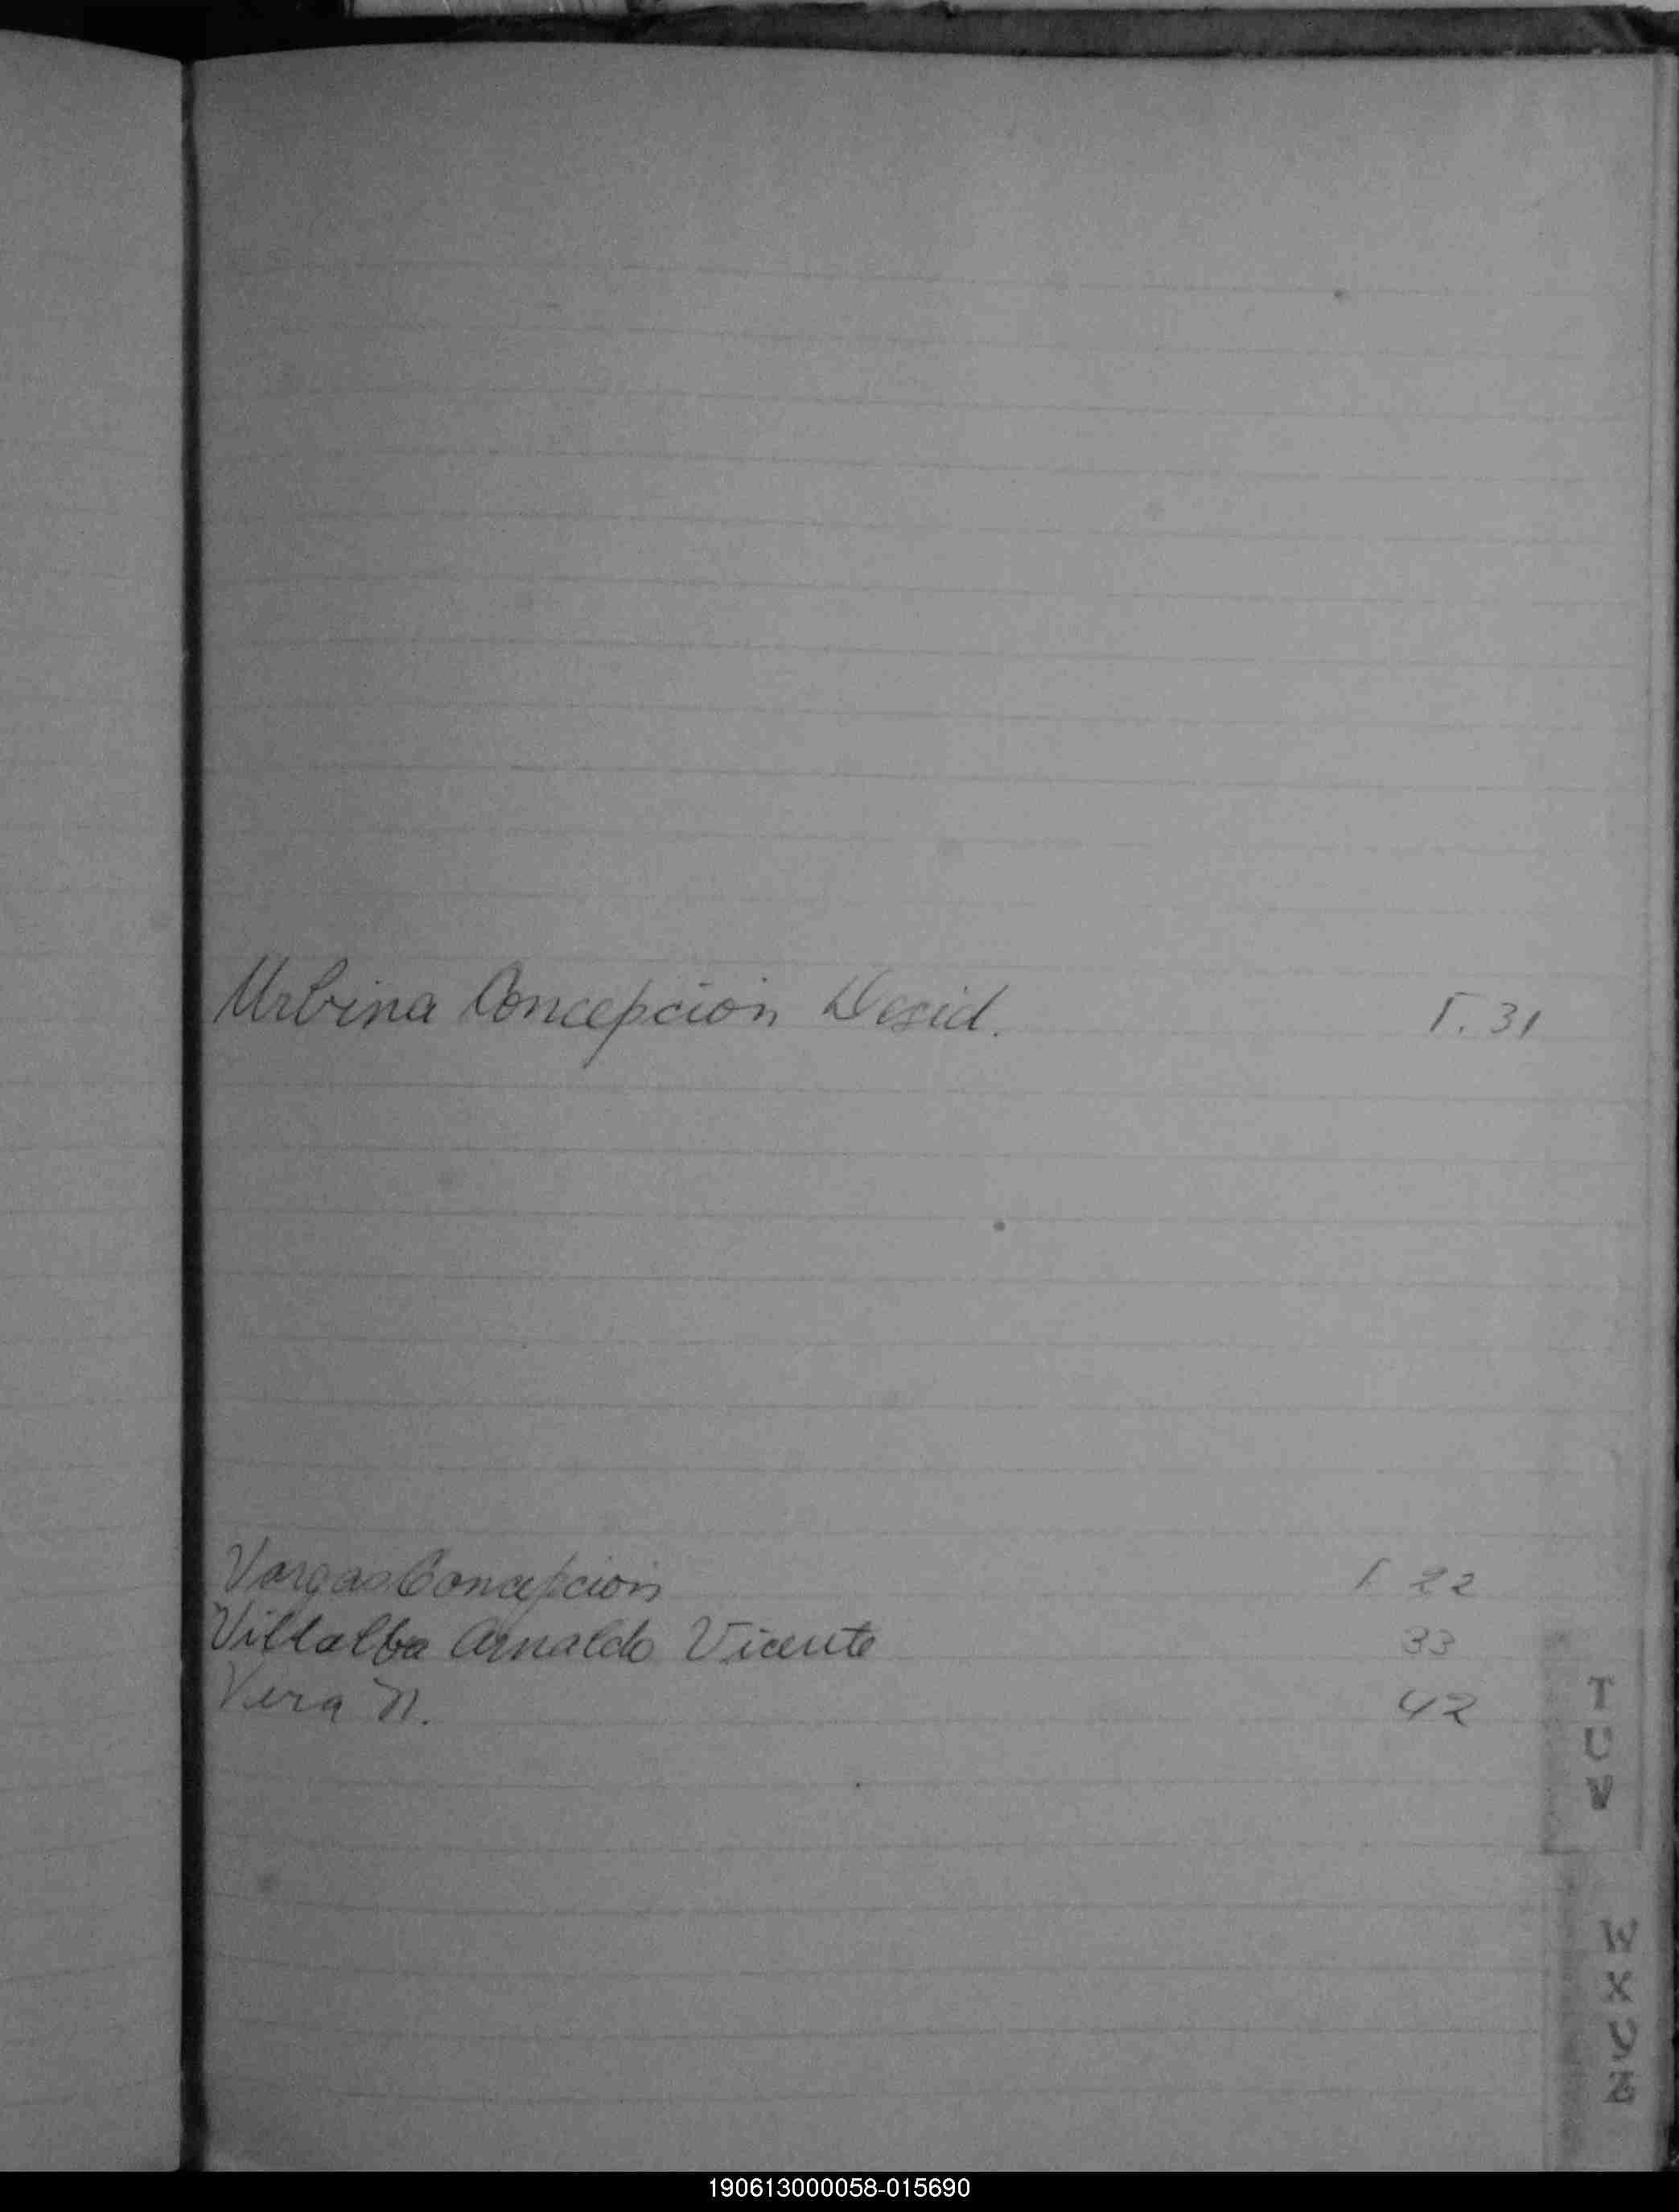 Urbina Concepcion Desid. F. 31
Vargas Concepcion F. 22
Villalba Arnaldo Vicente 33
Vera N. 42
T
U
V
W
X
Y
Z
190613000058-015690